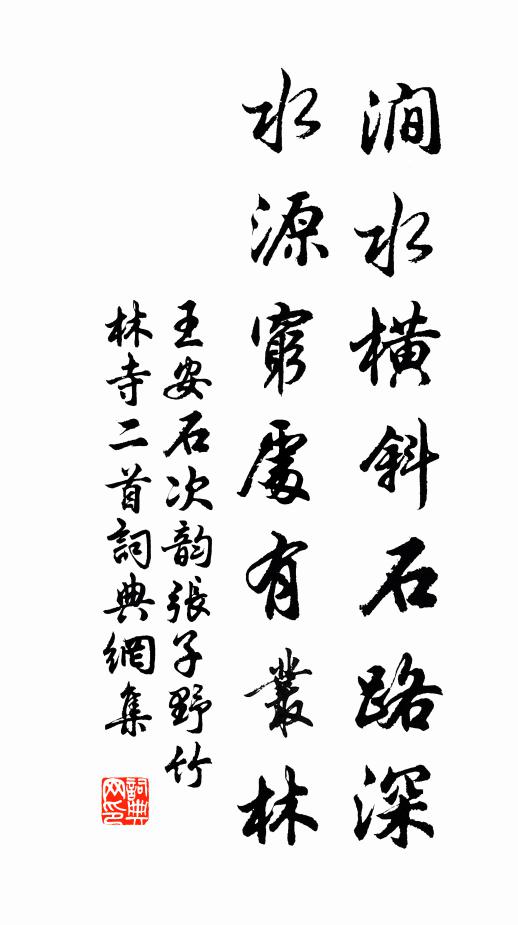 澗水橫斜石路深
水源窮處有叢林
王安石次韵張子野竹
林寺二首詞典網集
詞典网印